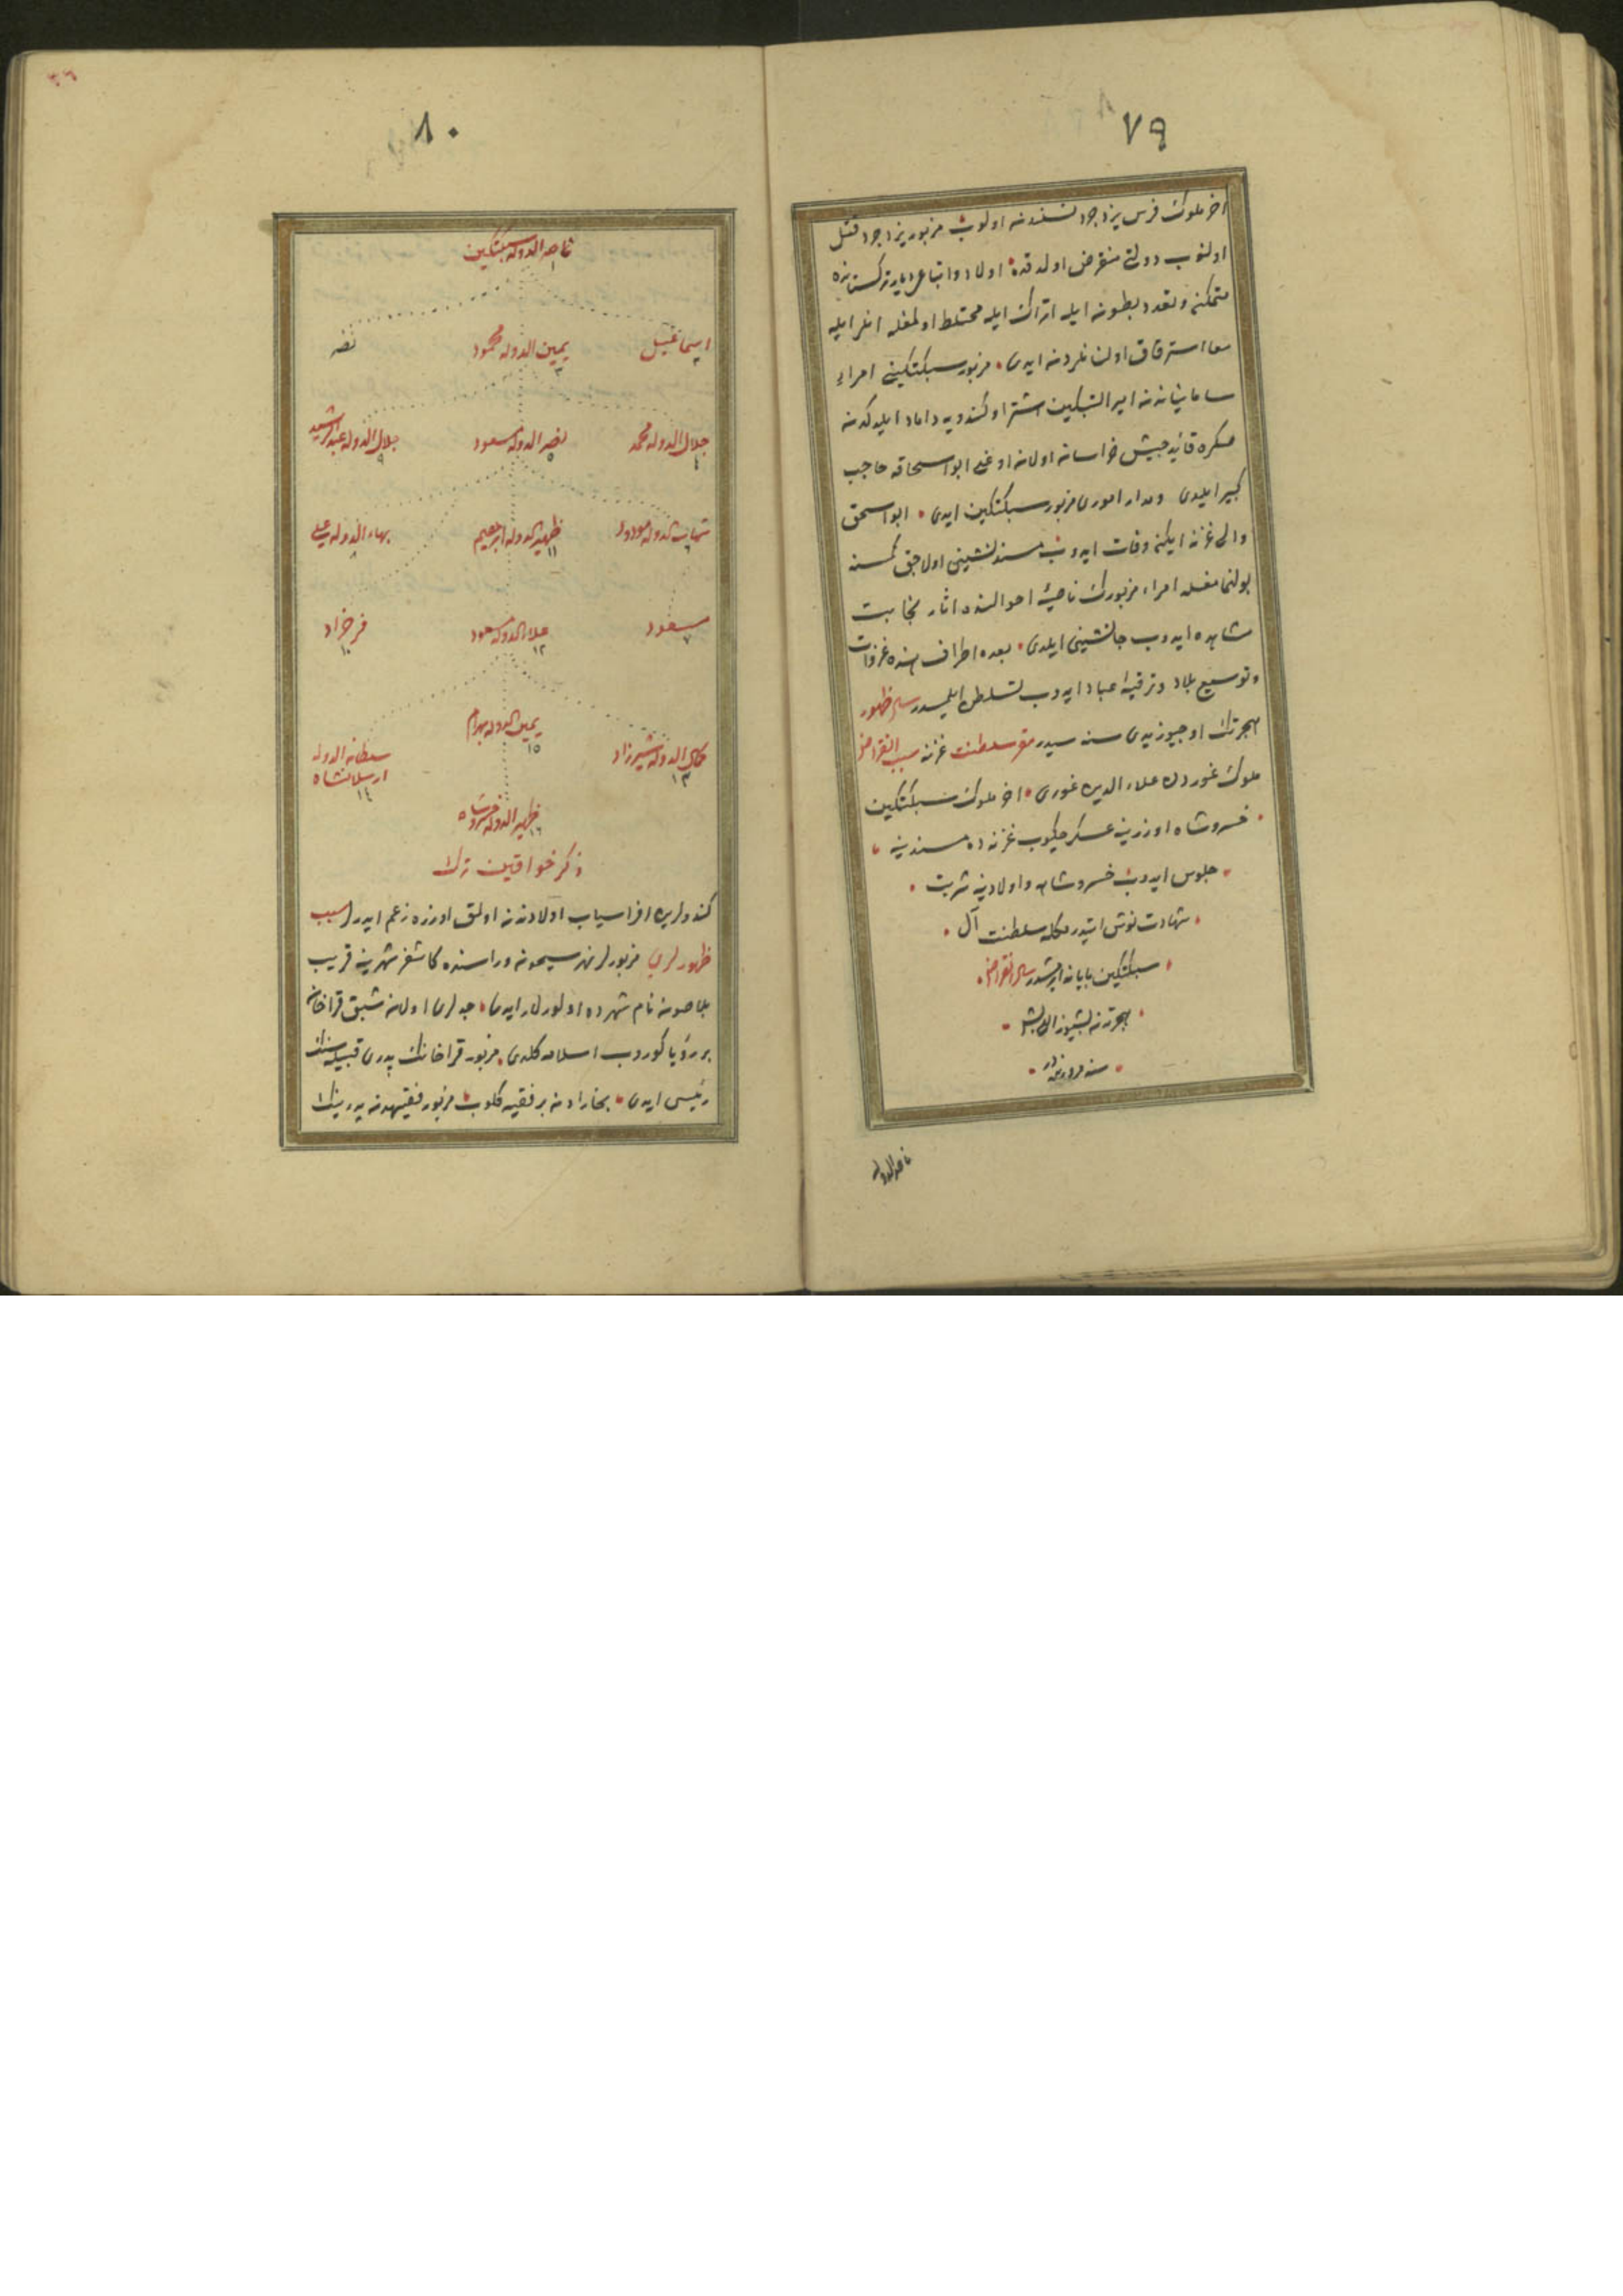 ٧٩
اخر ملوك فرس يزدجرد نسلندن اولوب مزبور يزدجرد قتل
اولنوب دولتى منقرض اولدقده اولاد واتباعى ديار تركستانده
متمكن وتعدد بطون ايله اتراك ايله مختلط اولمغله انلر ايله
معا استرقاق اولنانلردن ايدى مزبور سبكتكينى امراء
سامانياندن امير الپتكين اشترا وكندويه داماد ايلدكدن
صكره قائد جيش خراسان اولان اوغلى ابو اسحاقه حاجب
كبير ايلدى ومدار امورى مزبور سبكتكين ايدى ابو اسحق
والى غزنه ايكن وفات ايدوب مسندنشينى اولاجق كمسنه
بولنمامغله امراء مزبورك ناصيهٔ احوالنده اثار نجابت
مشاهده ايدوب جانشينى ايلدى بعده اطراف هنده غزوات
وتوسيع بلاد وترفيه عباد ايدوب تسلطن ايلمشدر سال ظهور
هجرتك اوچيوز يدى سنه سيدر مقر سلطنت غزنه سبب انقراض
ملوك غوردن علاء الدين غورى اخر ملوك سبكتكين
خسروشاه اوزرينه عسكر چكوب غزنه ده مسندينه
جلوس ايدوب خسروشاه واولادينه شربت
شهادت نوش ايتدرمكله سلطنت آل
سبكتكين پايانه ايرمشدر سال انقراض
هجرتدن بشيوز اللى بش
سنه مرورنده در
ناصر الدوله
٣٦
٨٠
ناصر الدوله سبكتكين ١
اسماعيل ٢ يمين الدوله محمود ٣ نصر
جلال الدوله محمد ٤ نصر الدوله مسعود ٥ جلال الدوله عبد الرشيد ٩
شهاب الدوله مودود ٦ ظهير الدوله ابراهيم ١١ بهاء الدوله على ٨
مسعود ٧ علاء الدوله مسعود ١٢ فرخزاد ١٠
كمال الدوله شيرزاد ١٣ يمين الدوله بهرام ١٥ سلطان الدوله ارسلانشاه ١٤
ظهير الدوله خسروشاه ١٦
ذكر خواقين ترك
كندولرين افراسياب اولادندن اولمق اوزره زعم ايدرلر سبب
ظهورلرى مزبورلر نهر سيحون وراسنده كاشغر شهرينه قريب
بلاصون نام شهرده اولورلر ايدى جدلرى اولان شبق قراخان
بر رؤيا كوروب اسلامه كلدى مزبور قراخانك پدرى قبيله سنك
رئيس ايدى بخارادن بر فقيه كلوب مزبور فقيهدن پدرينك